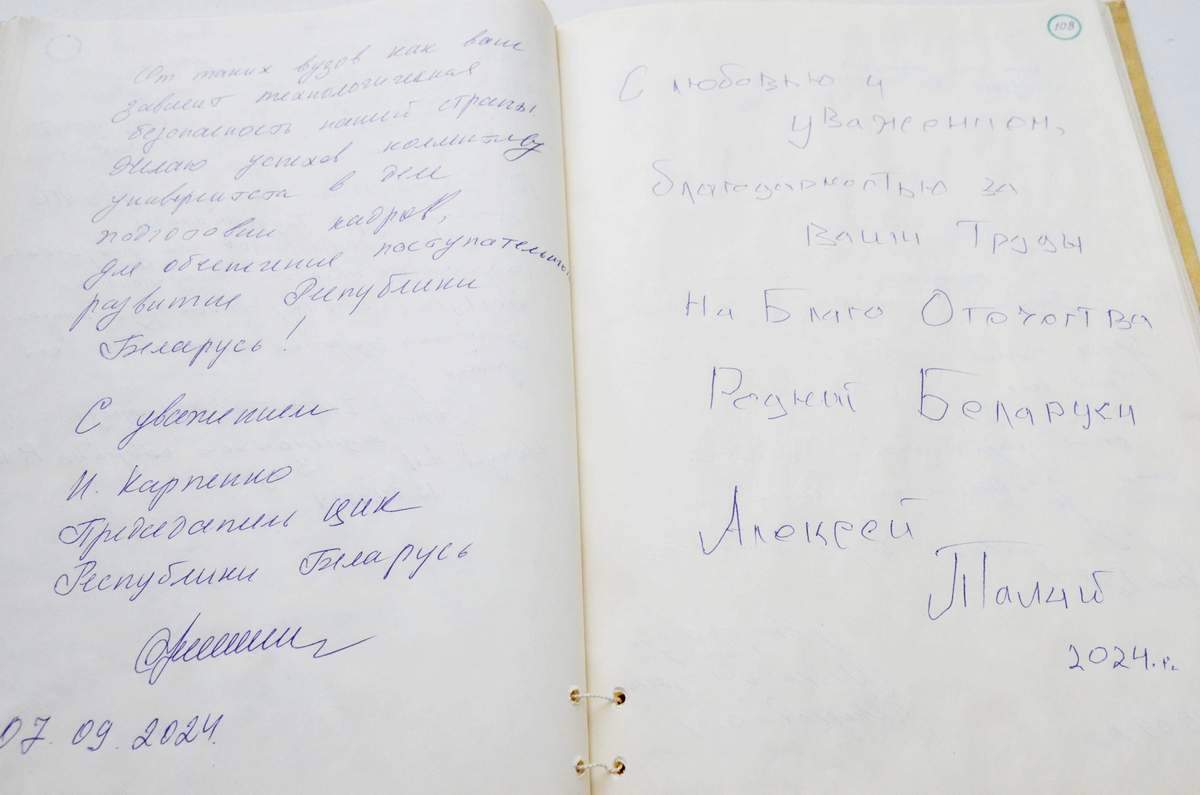 От таких вузов как ваш
зависит технологическая
безопасность нашей страны.
Желаю успехов коллективу
университета в деле
подготовки кадров,
для обеспечение поступательного
развитие Республики
Беларусь!
С уважением
И. Карпенко
Председатель ЦИК
Республики Беларусь
07.09.2024.
108
С любовью и
уважением,
благодарностью за
Ваши Труды
На Благо Отечества
Родной Беларуси
Алексей
Талай
2024.г.